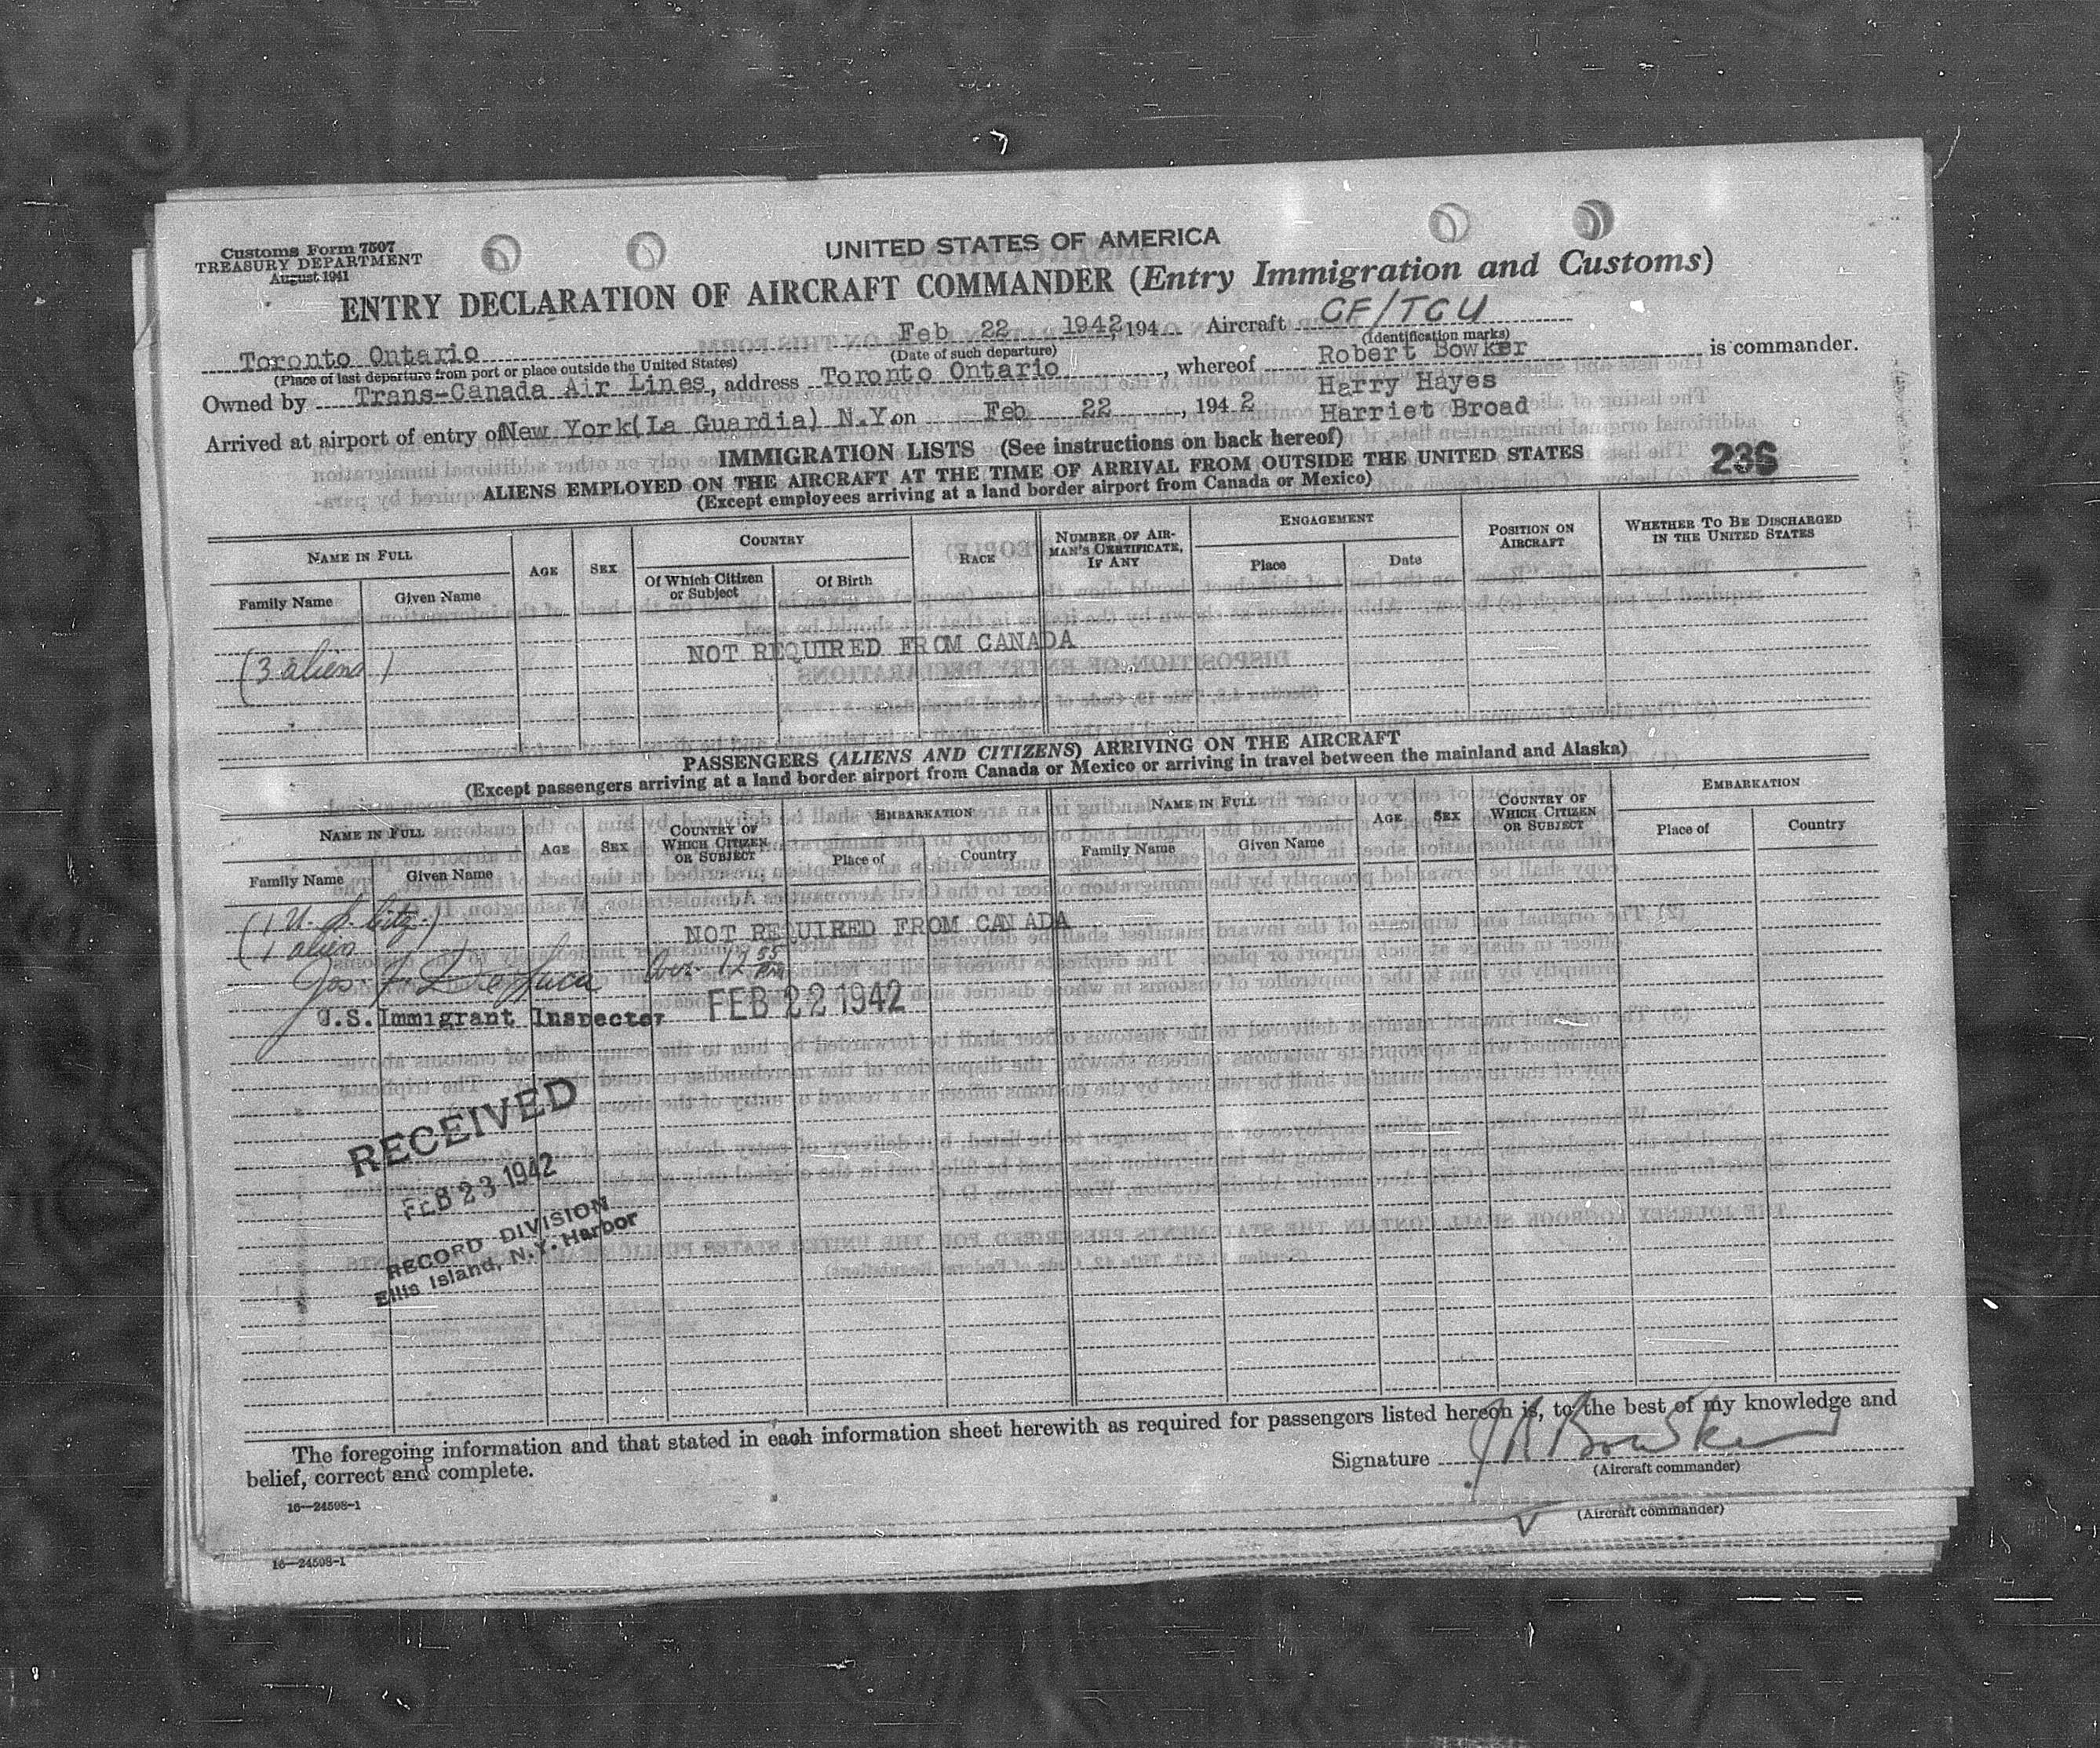 Customs Form 7507
TREASURY DEPARTMENT
August 1941
UNITED STATES OF AMERICA
ENTRY DECLARATION OF AIRCRAFT COMMANDER (Entry Immigration and Customs)
Toronto Ontario Feb 22 1942, 194 Aircraft CF/TCU
(Place of last departure from port or place outside the United States) (Date of such departure) (Identification marks)
Owned by Trans-Canada Air Lines, address Toronto Ontario, whereof Robert Bowker is commander.
Harry Hayes
Arrived at airport of entry of New York(La Guardia) N.Y. on Feb 22, 1942 Harriet Broad
IMMIGRATION LISTS (See instructions on back hereof)
236
ALIENS EMPLOYED ON THE AIRCRAFT AT THE TIME OF ARRIVAL FROM OUTSIDE THE UNITED STATES
(Except employees arriving at a land border airport from Canada or Mexico)
NAME IN FULL AGE SEX COUNTRY RACE NUMBER OF AIRMAN'S CERTIFICATE, IF ANY ENGAGEMENT POSITION ON AIRCRAFT WHETHER TO BE DISCHARGED IN THE UNITED STATES
Family Name Given Name Of Which Citizen or Subject Of Birth Place Date
(3 aliens) NOT REQUIRED FROM CANADA
PASSENGERS (ALIENS AND CITIZENS) ARRIVING ON THE AIRCRAFT
(Except passengers arriving at a land border airport from Canada or Mexico or arriving in travel between the mainland and Alaska)
NAME IN FULL AGE SEX COUNTRY OF WHICH CITIZEN OR SUBJECT EMBARKATION NAME IN FULL AGE SEX COUNTRY OF WHICH CITIZEN OR SUBJECT EMBARKATION
Family Name Given Name Place of Country Family Name Given Name Place of Country
(1 U.S. citz.)
(1 alien NOT REQUIRED FROM CANADA
Jos. F. 12 55
U.S. Immigrant Inspector FEB 22 1942
RECEIVED
FEB 23 1942
RECORD DIVISION
Ellis Island, N.Y. Harbor
The foregoing information and that stated in each information sheet herewith as required for passengers listed hereon is, to the best of my knowledge and
belief, correct and complete.
Signature J R Bowker
(Aircraft commander)
16—24508-1
(Aircraft commander)
16—24508-1